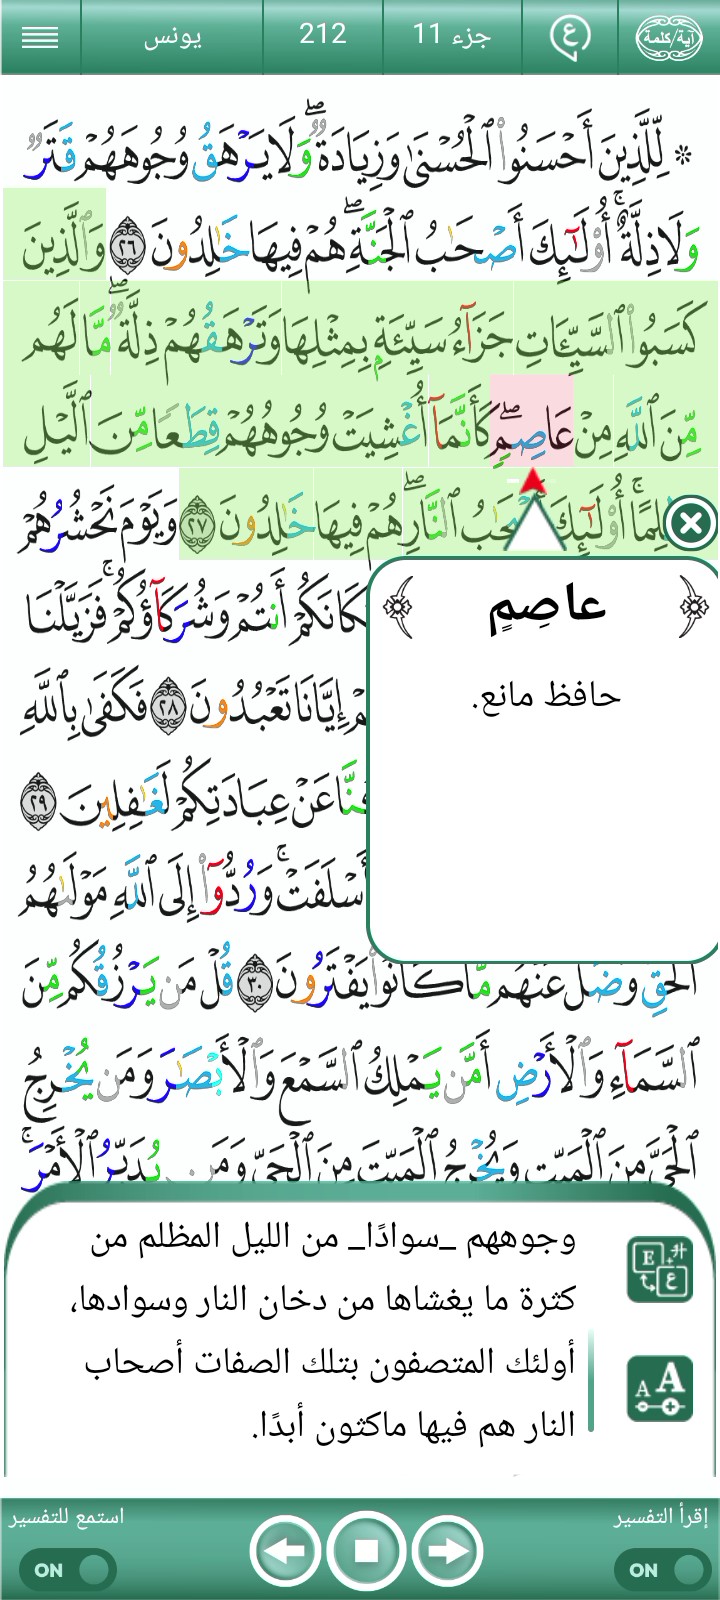 آية/كلمة
ع
جزء 11
212
يونس
۞ لِّلَّذِينَ أَحْسَنُوا۟ ٱلْحُسْنَىٰ وَزِيَادَةٌ ۖ وَلَا يَرْهَقُ وُجُوهَهُمْ قَتَرٌ
وَلَا ذِلَّةٌ ۚ أُو۟لَـٰٓئِكَ أَصْحَـٰبُ ٱلْجَنَّةِ ۖ هُمْ فِيهَا خَـٰلِدُونَ ٢٦ وَٱلَّذِينَ
كَسَبُوا۟ ٱلسَّيِّـَٔاتِ جَزَآءُ سَيِّئَةٍۭ بِمِثْلِهَا وَتَرْهَقُهُمْ ذِلَّةٌ ۖ مَّا لَهُم
مِّنَ ٱللَّهِ مِنْ عَاصِمٍ ۖ كَأَنَّمَآ أُغْشِيَتْ وُجُوهُهُمْ قِطَعًا مِّنَ ٱلَّيْلِ
ـلِمًا ۚ أُو۟لَـٰٓئِكَ أَصْحَـٰبُ ٱلنَّارِ ۖ هُمْ فِيهَا خَـٰلِدُونَ ٢٧ وَيَوْمَ نَحْشُرُهُمْ
عاصِمٍ
حافظ مانع.
مَكَانَكُمْ أَنتُمْ وَشُرَكَآؤُكُمْ ۚ فَزَيَّلْنَا
إِيَّانَا تَعْبُدُونَ ٢٨ فَكَفَىٰ بِٱللَّهِ
عَنْ عِبَادَتِكُمْ لَغَـٰفِلِينَ ٢٩
أَسْلَفَتْ ۚ وَرُدُّوٓا۟ إِلَى ٱللَّهِ مَوْلَىٰهُمُ
ٱلْحَقِّ ۖ وَضَلَّ عَنْهُم مَّا كَانُوا۟ يَفْتَرُونَ ٣٠ قُلْ مَن يَرْزُقُكُم مِّنَ
ٱلسَّمَآءِ وَٱلْأَرْضِ أَمَّن يَمْلِكُ ٱلسَّمْعَ وَٱلْأَبْصَـٰرَ وَمَن يُخْرِجُ
ٱلْحَىَّ مِنَ ٱلْمَيِّتِ وَيُخْرِجُ ٱلْمَيِّتَ مِنَ ٱلْحَىِّ وَمَن يُدَبِّرُ ٱلْأَمْرَ ۚ
وجوههم _سوادًا_ من الليل المظلم من
كثرة ما يغشاها من دخان النار وسوادها،
أولئك المتصفون بتلك الصفات أصحاب
النار هم فيها ماكثون أبدًا.
إقرأ التفسير
ON
استمع للتفسير
ON